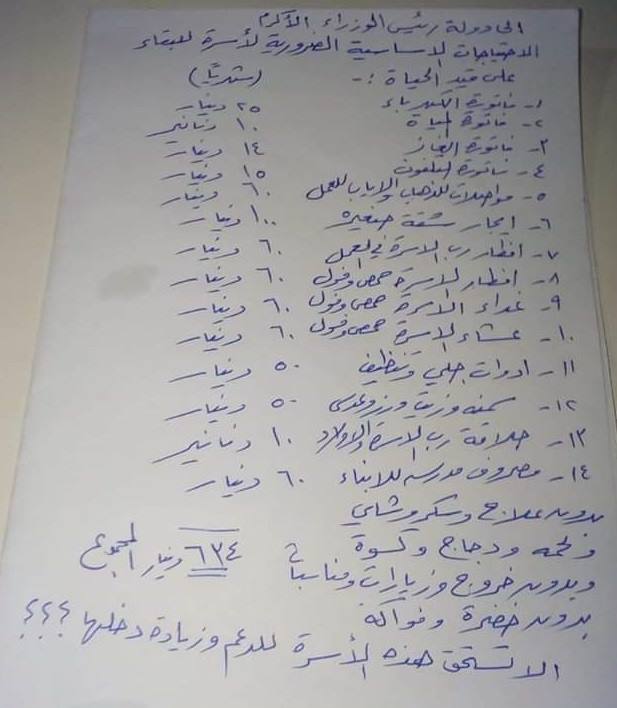 الى دولة رئيس الوزراء الأكرم
الاحتياجات الاساسية الضرورية لأسرة للبقاء
على قيد الحياة :- (شهريًا)
١- فاتورة الكهرباء ٢٥ دينار
٢- فاتورة المياة ١٠ دنانير
٣- فاتورة الغاز ١٤ دينار
٤- فاتورة تلفون ١٥ دينار
٥- مواصلات للذهاب والاياب للعمل ٦٠ دينار
٦- ايجار شقة صغيره ١٠٠ دينار
٧- افطار رب الاسرة في العمل ٦٠ دينار
٨- افطار الاسرة حمص وفول ٦٠ دينار
٩- غداء الاسرة حمص وفول ٦٠ دينار
١٠- عشاء الاسرة حمص وفول ٦٠ دينار
١١- ادوات جلي وتنظيف ٥٠ دينار
١٢- سمنه وزيت ورز وعدس ٥٠ دينار
١٣- حلاقة رب الاسرة والاولاد ١٠ دنانير
١٤- مصروف مدرسه للابناء ٦٠ دينار
بدون علاج وسكر وشاي
ولحمه ودجاج وكسوة ٦٣٤ دينار المجموع
وبدون خروج وزيارات ومناسبات
بدون خضرة وفواكه
الا تستحق هذه الأسرة للدعم وزيادة دخلها ؟؟؟